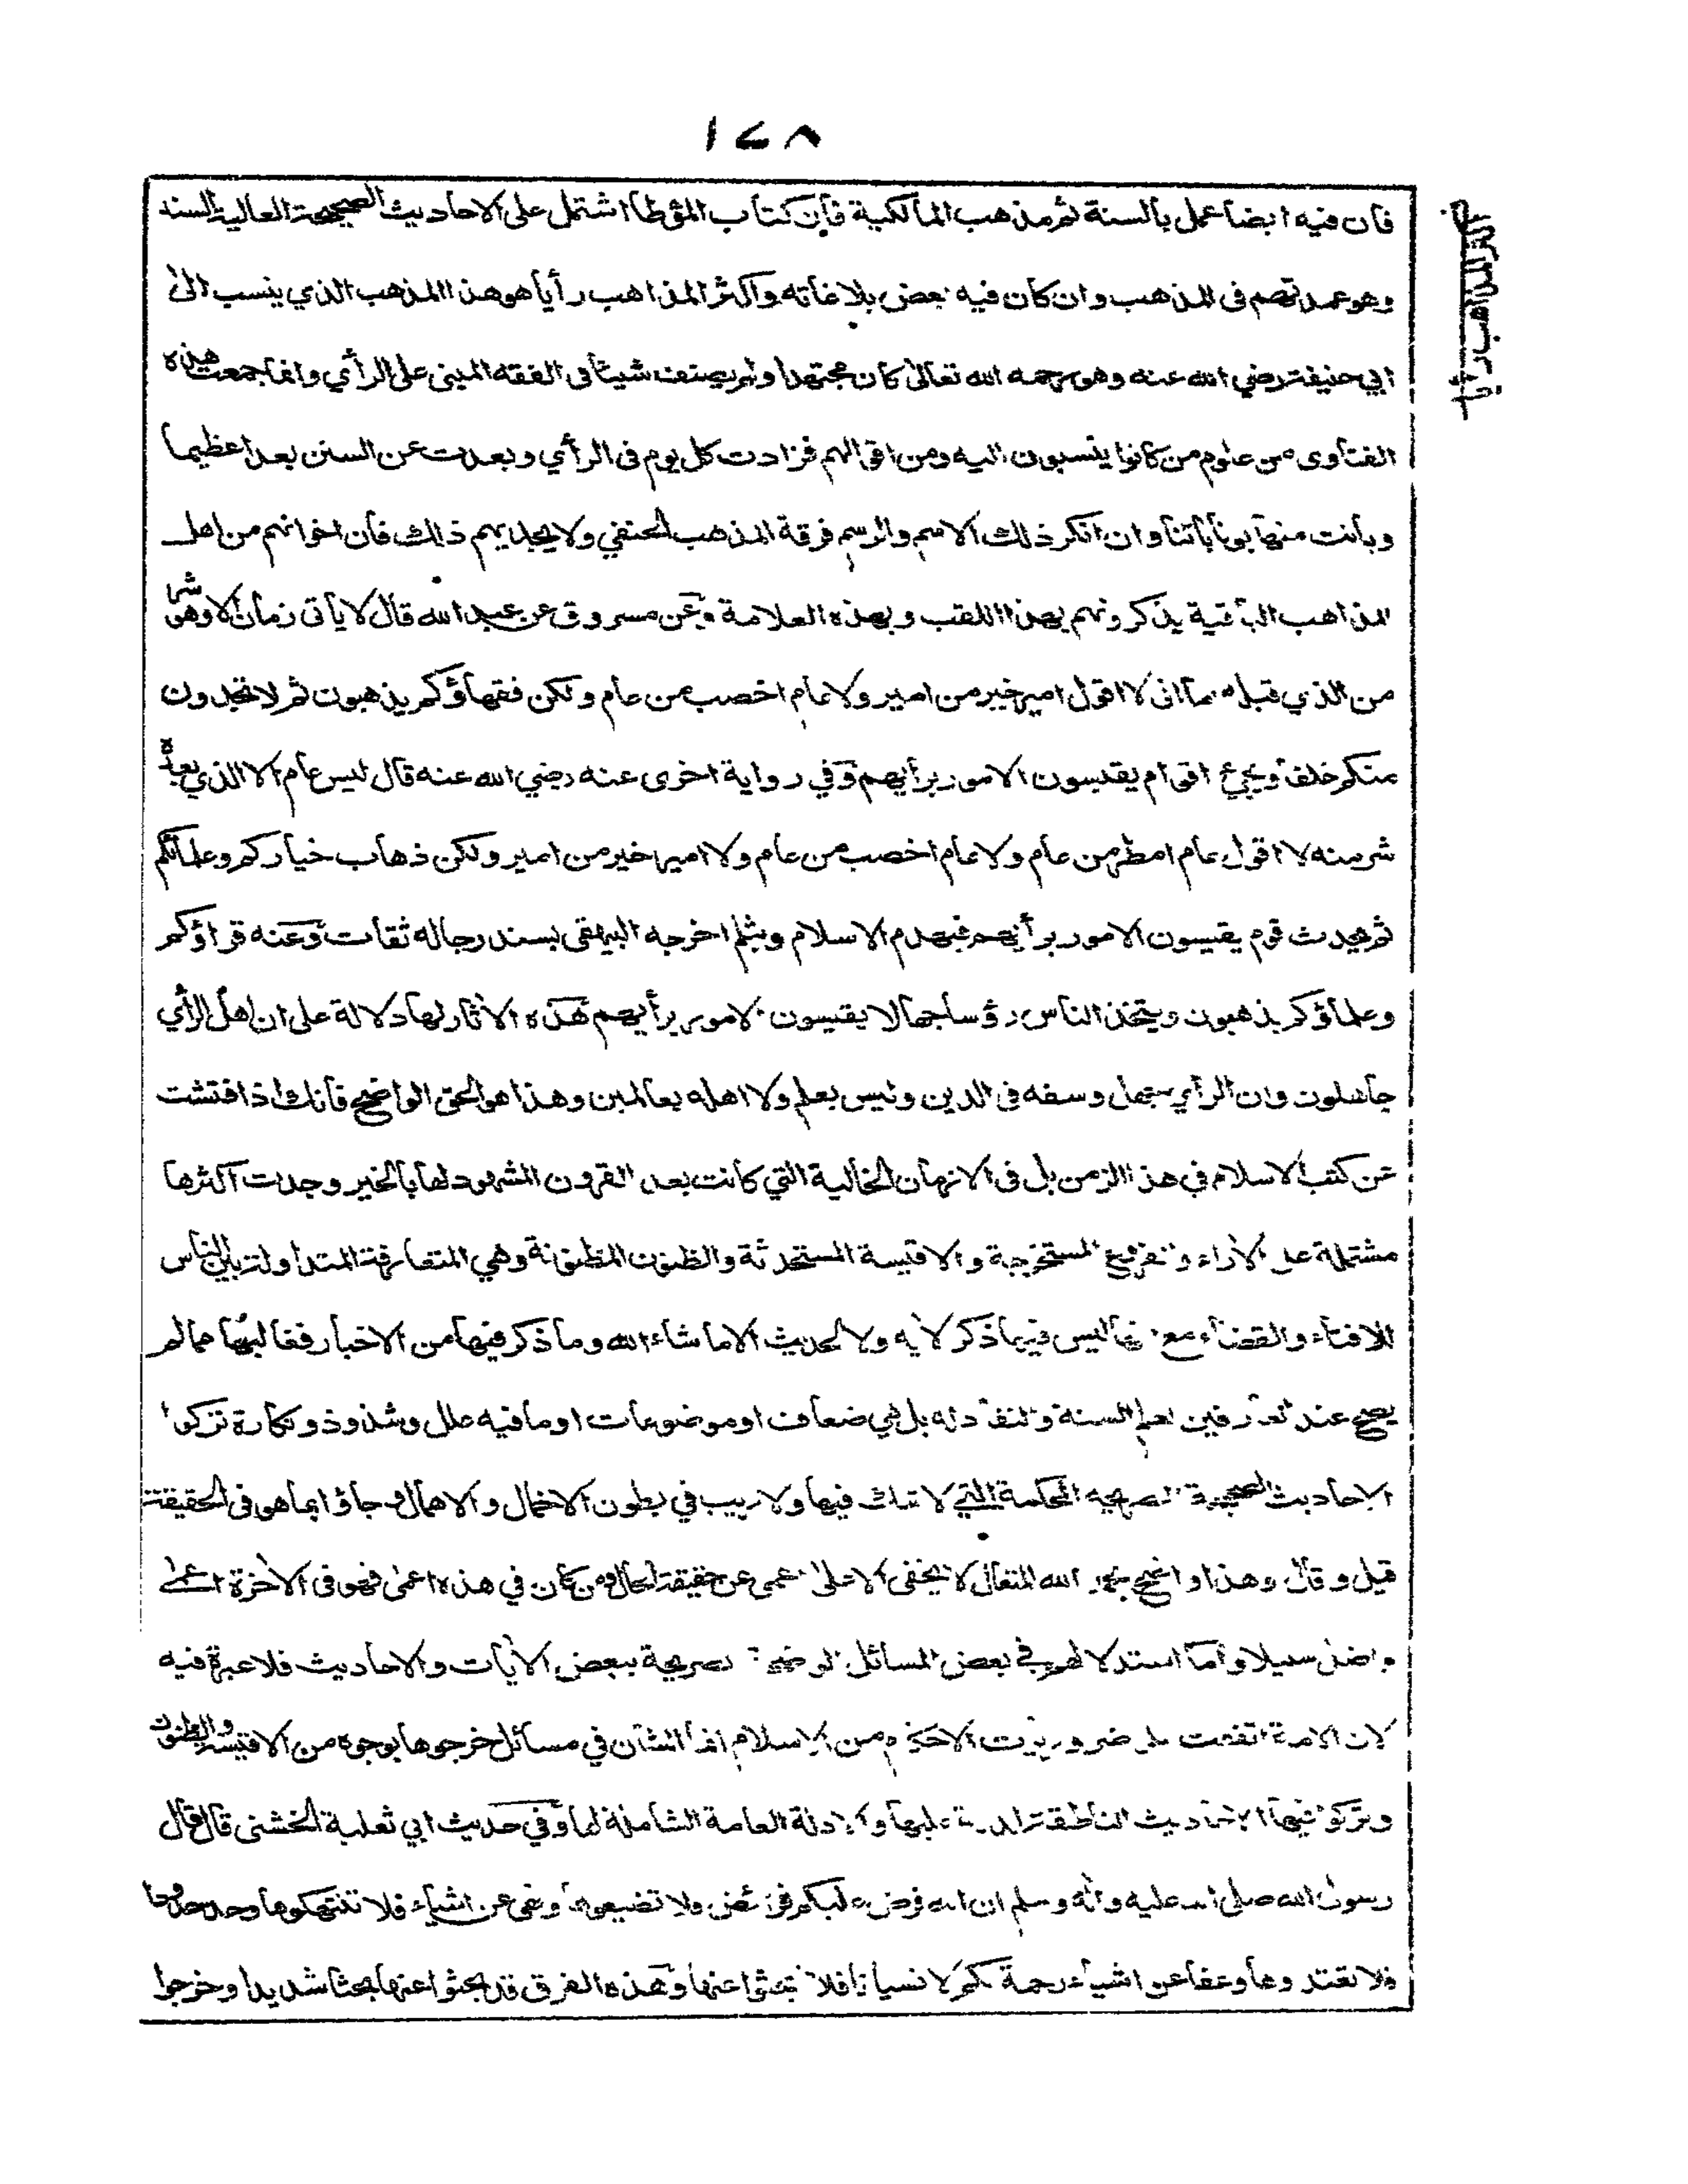 ١٧٨
فان فيه ايضا عمل بالسنة ثم مذهب المالكية فان كتاب المؤطا اشتمل على الاحاديث الصحيحة العالية السند
وهو عمدتهم في المذهب وان كان فيه بعض بلاغاته واكثر المذاهب رأيا هو هذا المذهب الذي ينسب الى
ابي حنيفة رضي الله عنه وهو رحمه الله تعالى كان مجتهدا ولم يصنف شيئا في الفقه المبني على الرأي وانما جمعت هذه
الفتاوى من علوم من كانوا ينتسبون اليه ومن اقوالهم فزادت كل يوم في الرأي وبعدت عن السنن بعدا عظيما
وبانت منها بونا بائنا وان انكر ذلك الاسم والرسم فرقة المذهب الحنفي ولا يجديهم ذلك فان اخوانهم من اهل
المذاهب الباقية يذكرونهم بهذا اللقب وبهذه العلامة وعن مسروق عن عبد الله قال لا ياتي زمان الا وهو شر
من الذي قبله اما اني لا اقول امير خير من امير ولا عام اخصب من عام ولكن فقهاؤكم يذهبون ثم لا تجدون
منكم خلفا ويجيء اقوام يقيسون الامور برأيهم وفي رواية اخرى عنه رضي الله عنه قال ليس عام الا الذي بعده
شر منه لا اقول عام امطر من عام ولا عام اخصب من عام ولا امير اخير من امير ولكن ذهاب خياركم وعلمائكم
ثم يحدث قوم يقيسون الامور برأيهم فيهدم الاسلام ويثلم اخرجه البيهقي بسند رجاله ثقات وعنه قراؤكم
وعلماؤكم يذهبون ويتخذ الناس رؤسا جهالا يقيسون الامور برأيهم فهذه الاثار لها دلالة على ان اهل الرأي
جاهلون وان الرأي جهل وسفه في الدين وليس بعلم ولا اهله بعالمين وهذا هو الحق الواضح فانك اذا فتشت
عن كتب الاسلام في هذا الزمن بل في الازمان الخالية التي كانت بعد القرون المشهود لها بالخير وجدت اكثرها
مشتملة على الاراء والتفريع المستخرجة والاقيسة المستحدثة والظنون المظنونة وهي المتعارفة المتداولة بين الناس
للافتاء والقضاء مع انها ليس فيها ذكر لاية ولا لحديث الا ما شاء الله وما ذكر فيها من الاخبار فغالبها مما لم
يصح عند العارفين بعلم السنة والنقاد له بل هي ضعاف او موضوعات او ما فيه علل وشذوذ ونكارة تركوا
الاحاديث الصحيحة الصريحة المحكمة التي لا شك فيها ولا ريب في بطون الاخمال والاهمال وجاؤا بما هو في الحقيقة
قيل وقال وهذا واضح بحمد الله المتعال لا يخفى الا على اعمى عن حقيقة الحال ومن كان في هذه اعمى فهو في الاخرة اعمى
واضل سبيلا واما استدلالهم في بعض المسائل الواضحة الصريحة ببعض الايات والاحاديث فلا عبرة فيه
لان الامة اتفقت على ضروريات الاحكام من الاسلام انما الشان في مسائل خرجوها بوجوه من الاقيسة والظنون
وتركوا فيها الاحاديث الناطقة الدالة عليها والادلة العامة الشاملة لها وفي حديث ابي ثعلبة الخشني قال قال
رسول الله صلى الله عليه واله وسلم ان الله فرض عليكم فرائض ولا تضيعوها ونهى عن اشياء فلا تنتهكوها وحد حدودا
فلا تعتدوها وعفا عن اشياء رحمة لكم لا نسيانا فلا تبحثوا عنها وهذه الفرق قد بحثوا عنها بحثا شديدا وخرجوا